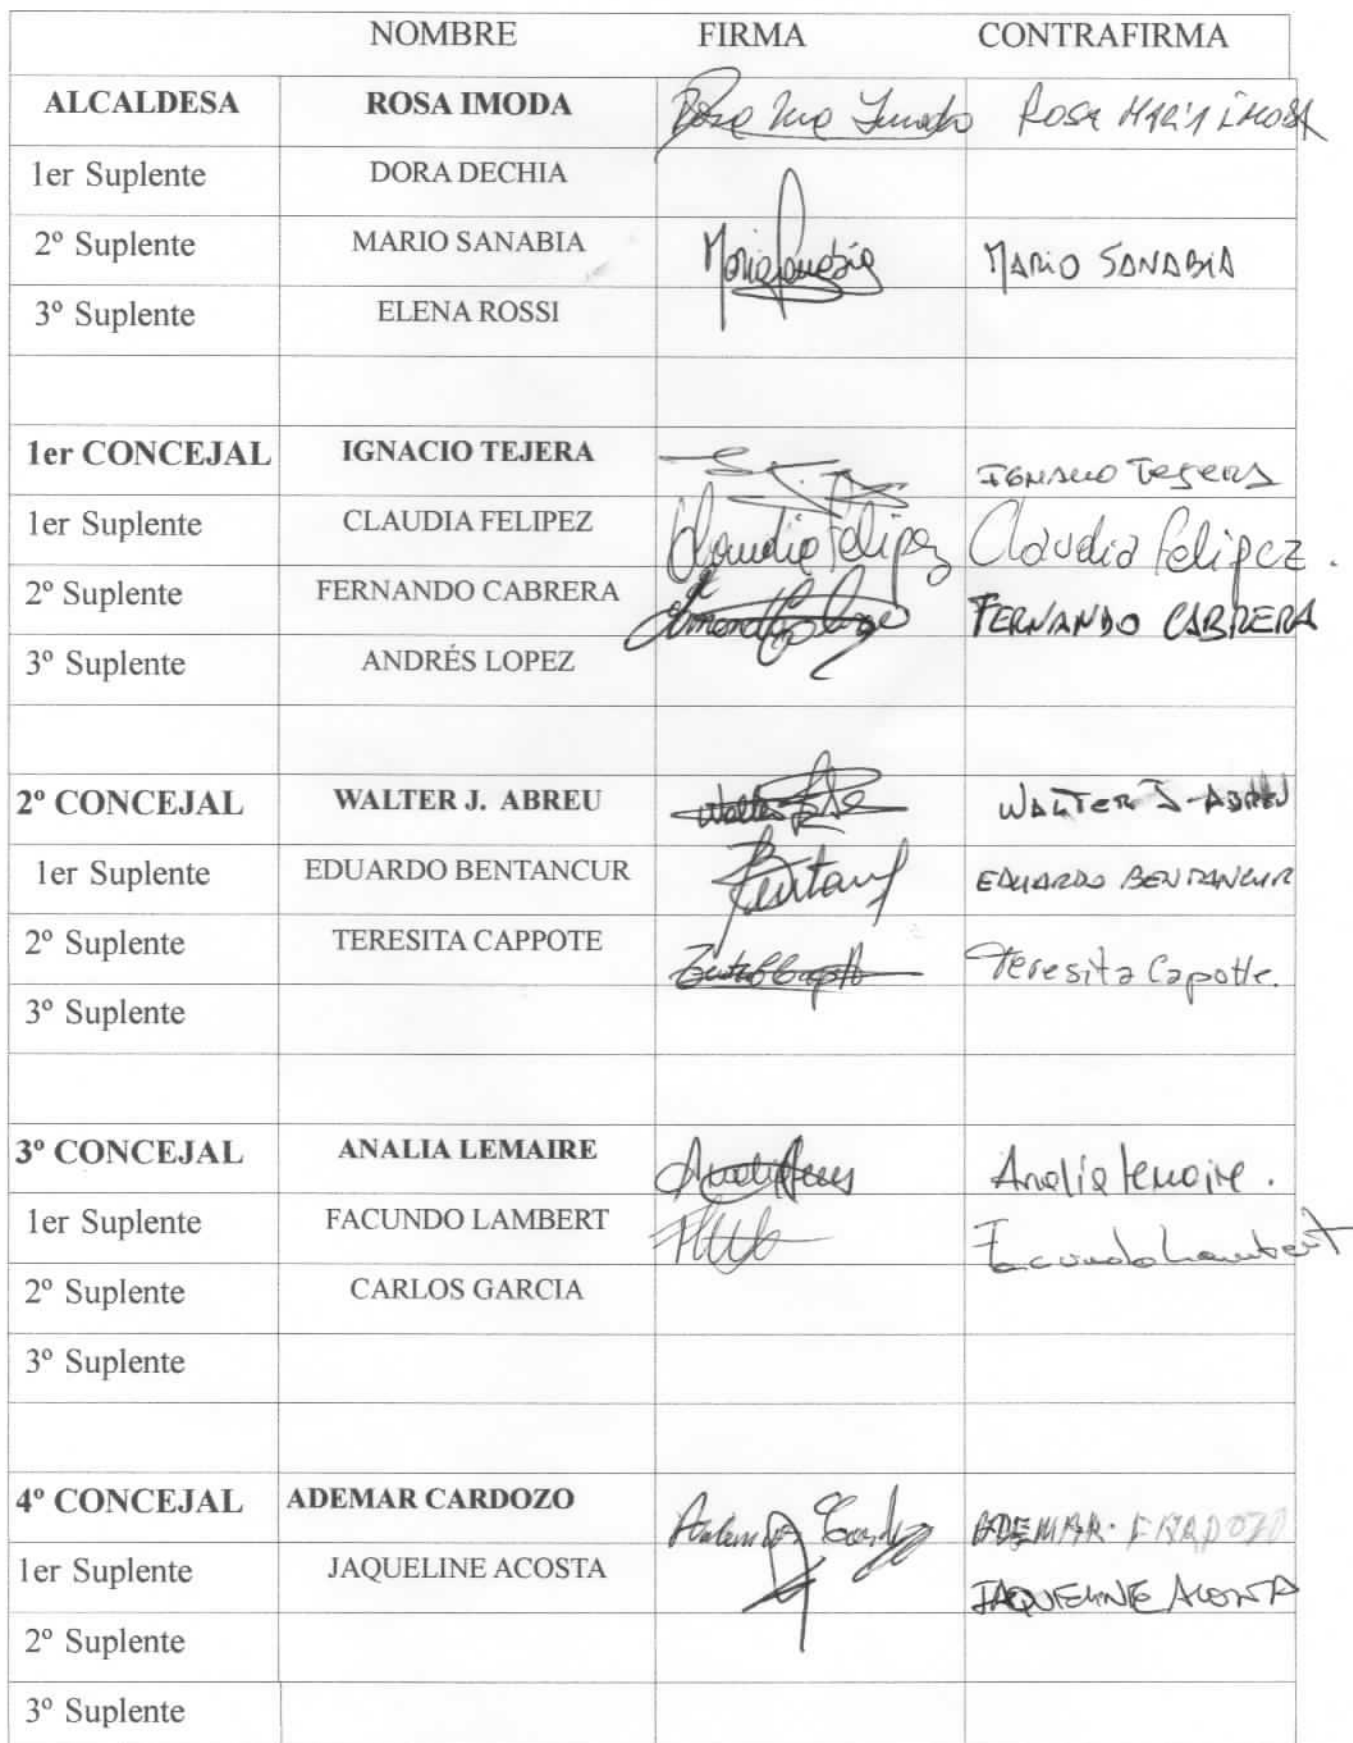 NOMBRE FIRMA CONTRAFIRMA
ALCALDESA ROSA IMODA ROSA MARÍA IMODA
1er Suplente DORA DECHIA
2º Suplente MARIO SANABIA MARIO SANABIA
3º Suplente ELENA ROSSI
1er CONCEJAL IGNACIO TEJERA IGNACIO TEJERA
1er Suplente CLAUDIA FELIPEZ Claudia Felipez Claudia Felipez.
2º Suplente FERNANDO CABRERA FERNANDO CABRERA
3º Suplente ANDRÉS LOPEZ
2º CONCEJAL WALTER J. ABREU WALTER J-ABREU
1er Suplente EDUARDO BENTANCUR EDUARDO BENTANCUR
2º Suplente TERESITA CAPPOTE Teresita Capotte.
3º Suplente
3º CONCEJAL ANALIA LEMAIRE Analia Lemaire.
1er Suplente FACUNDO LAMBERT Facundo Lambert
2º Suplente CARLOS GARCIA
3º Suplente
4º CONCEJAL ADEMAR CARDOZO ADEMAR
1er Suplente JAQUELINE ACOSTA JAQUELINE ACOSTA
2º Suplente
3º Suplente